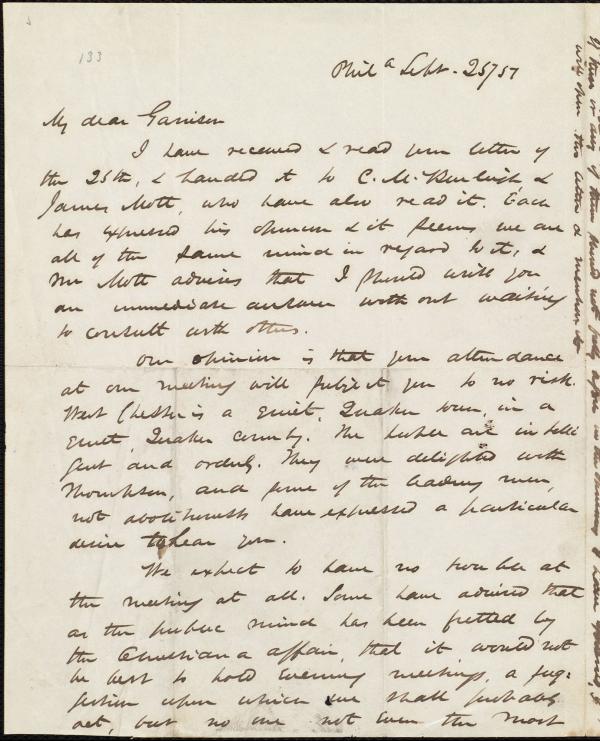 133
Phil a Sept. 25/51
My dear Garrison
I have received & read your letter of
the 25th, & handed it to C. M. Burleigh &
James Mott, who have also read it. Each
has expressed his opinion & it seems we are
all of the same mind in regard to it, &
Mr Mott advises that I should write you
an immediate answer without waiting
to consult with others.
Our opinion is that your attendance
at our meeting will subject you to no risk.
West Chester is a quiet, Quaker town, in a
quiet Quaker county. The people are intelli
gent and orderly. They were delighted with
Thompson, and some of the leading men,
not abolitionists have expressed a particular
desire to hear you.
We expect to have no trouble at
the meeting at all. Some have advised that
as the public mind has been fretted by
the Christiana affair, that it would not
be best to hold evening meetings, a sug-
gestion upon which we shall probably
act, but no one not even the most
will open this letter & mention to